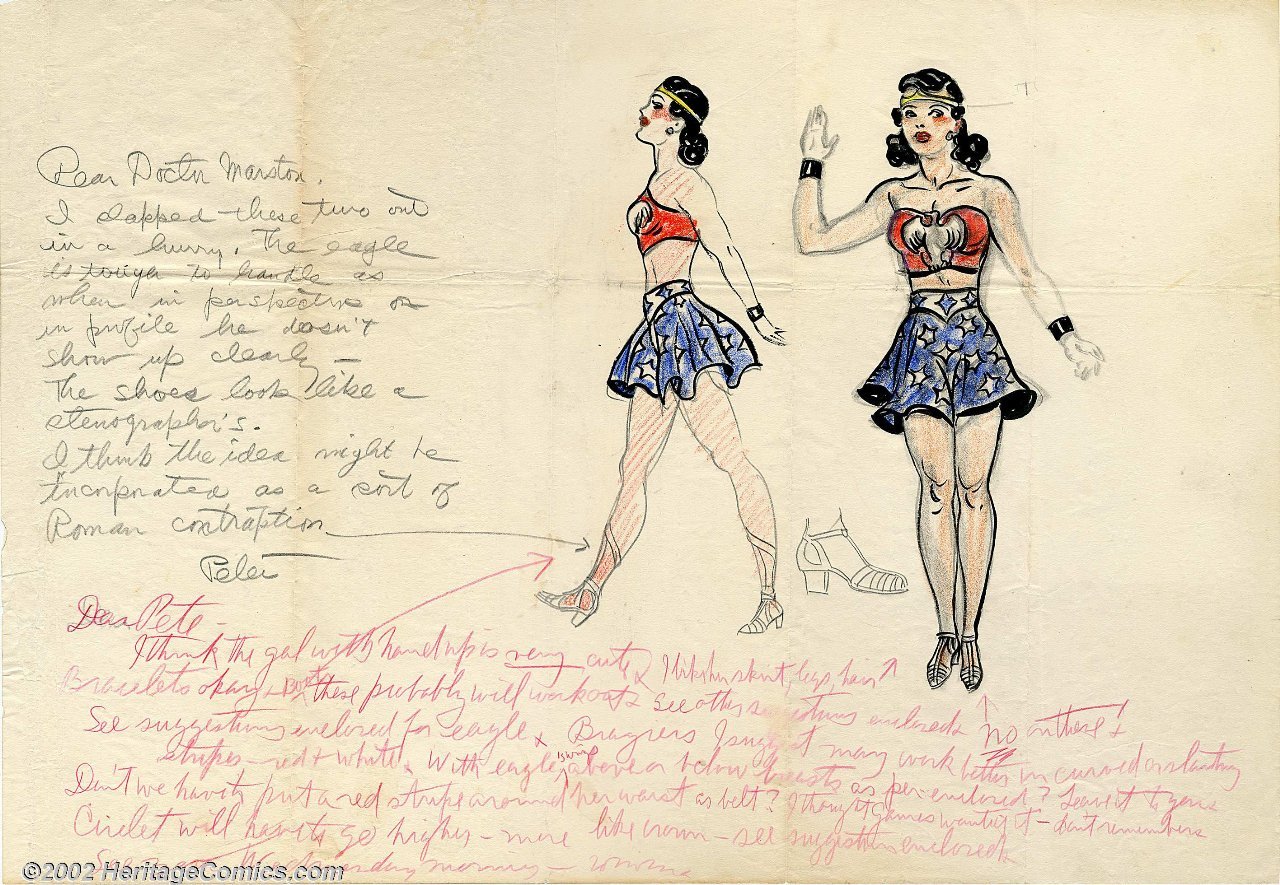 Dear Doctor Marston,
I slapped these two out
in a hurry. The eagle
is tough to handle as
when in perspective or
in profile he doesn't
show up clearly —
The shoes look like a
stenographer's.
I think the idea might be
incorporated as a sort of
Roman contraption
Peter
Dear Pete –
I think the gal with hand up is very cute. I like her skirt, legs, hair
Bracelets okay + boots these probably will work out. See other suggestions enclosed. No on these!
See suggestions enclosed for eagle. I suggest may work better in curved or slanting
stripes – red + white. With eagle above or below breasts as per enclosed? Leave it to you.
Don't we have to put a red stripe around her waist as belt? I thought Gaines wanted it – don't remember.
Circlet will have to go higher – more like crown – see suggestion enclosed.
Wednesday morning –
©2002 HeritageComics.com